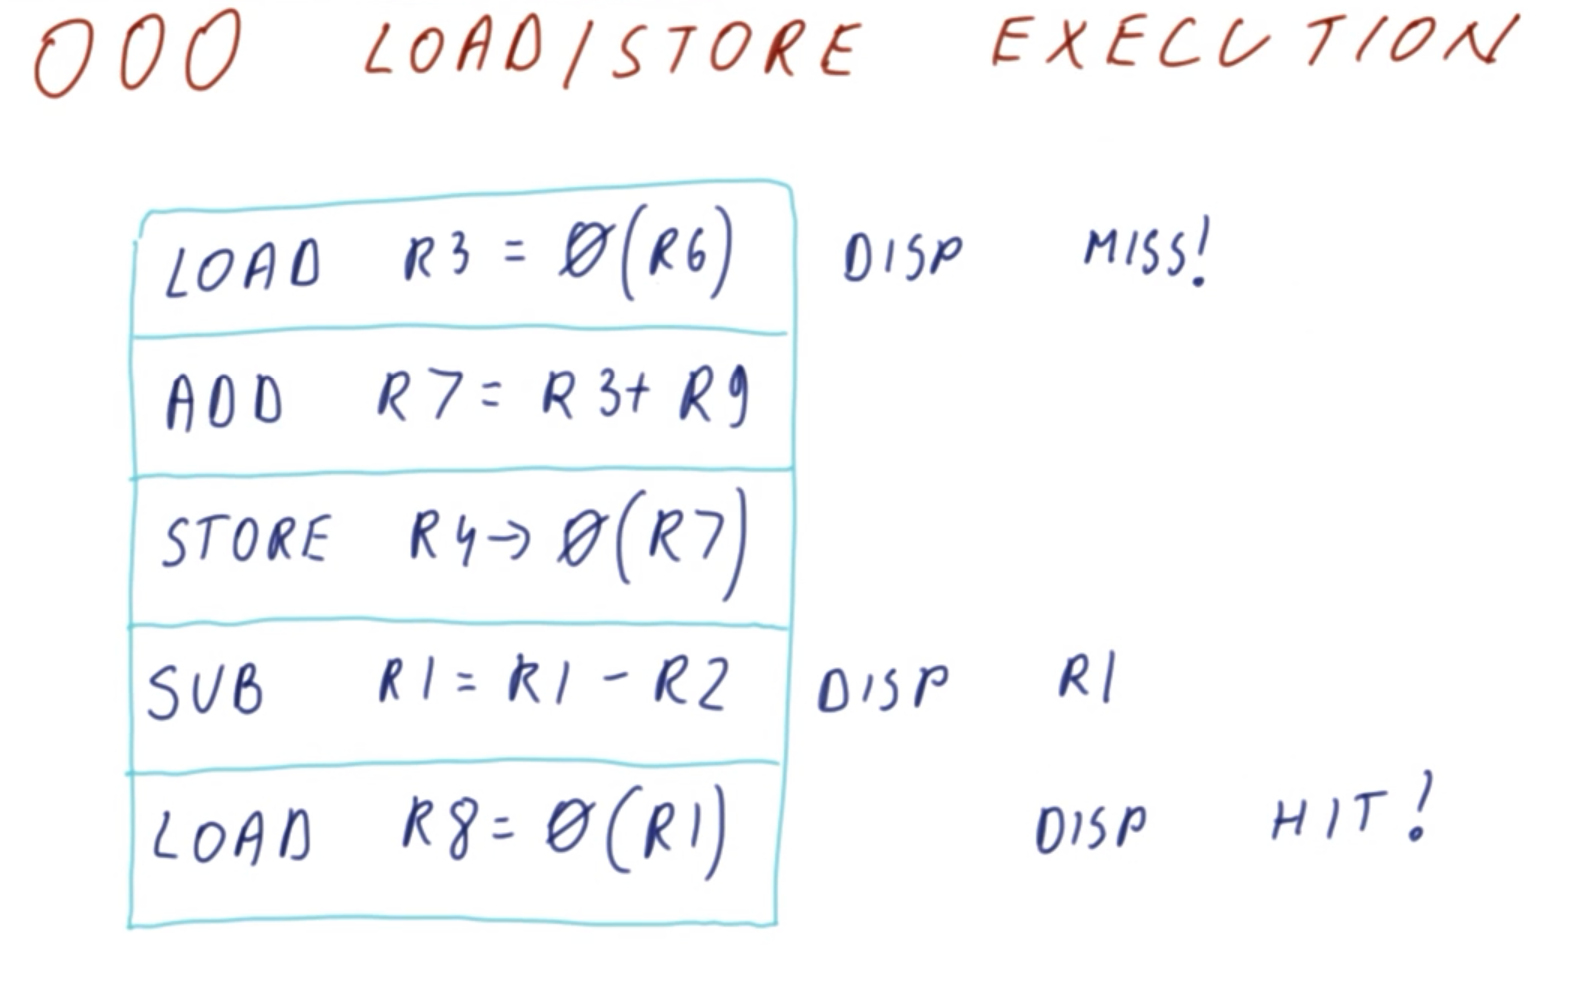 OOO LOAD/STORE EXECUTION
LOAD R3 = Ø(R6) DISP MISS!
ADD R7 = R3+ R9
STORE R4→Ø(R7)
SUB R1 = R1 - R2 DISP R1
LOAD R8 = Ø(R1) DISP HIT!